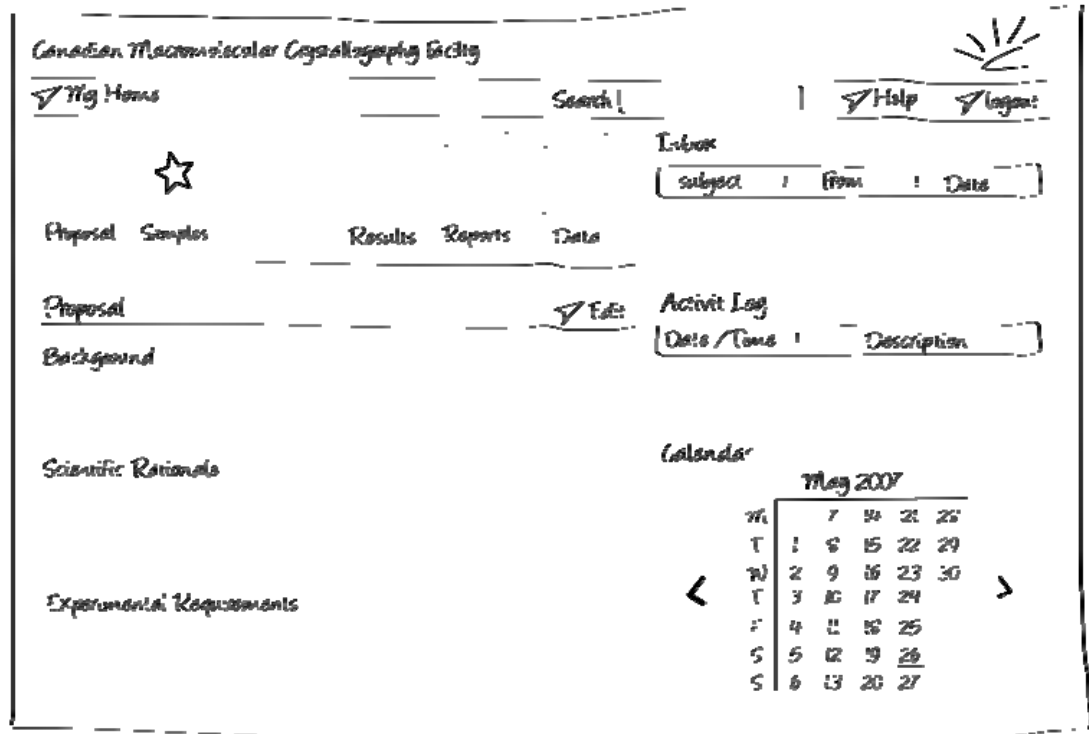 Canadian Macromolecular Crystallography Facility
My Home
Search
Help
Logout
Proposal Samples Results Reports Data
Proposal
Edit
Background
Scientific Rationale
Experimental Requirements
Inbox
subject From Date
Activit Log
Date/Time Description
Calendar
May 2007
M 7 14 21 28
T 1 8 15 22 29
W 2 9 16 23 30
T 3 10 17 24
F 4 11 18 25
S 5 12 19 26
S 6 13 20 27